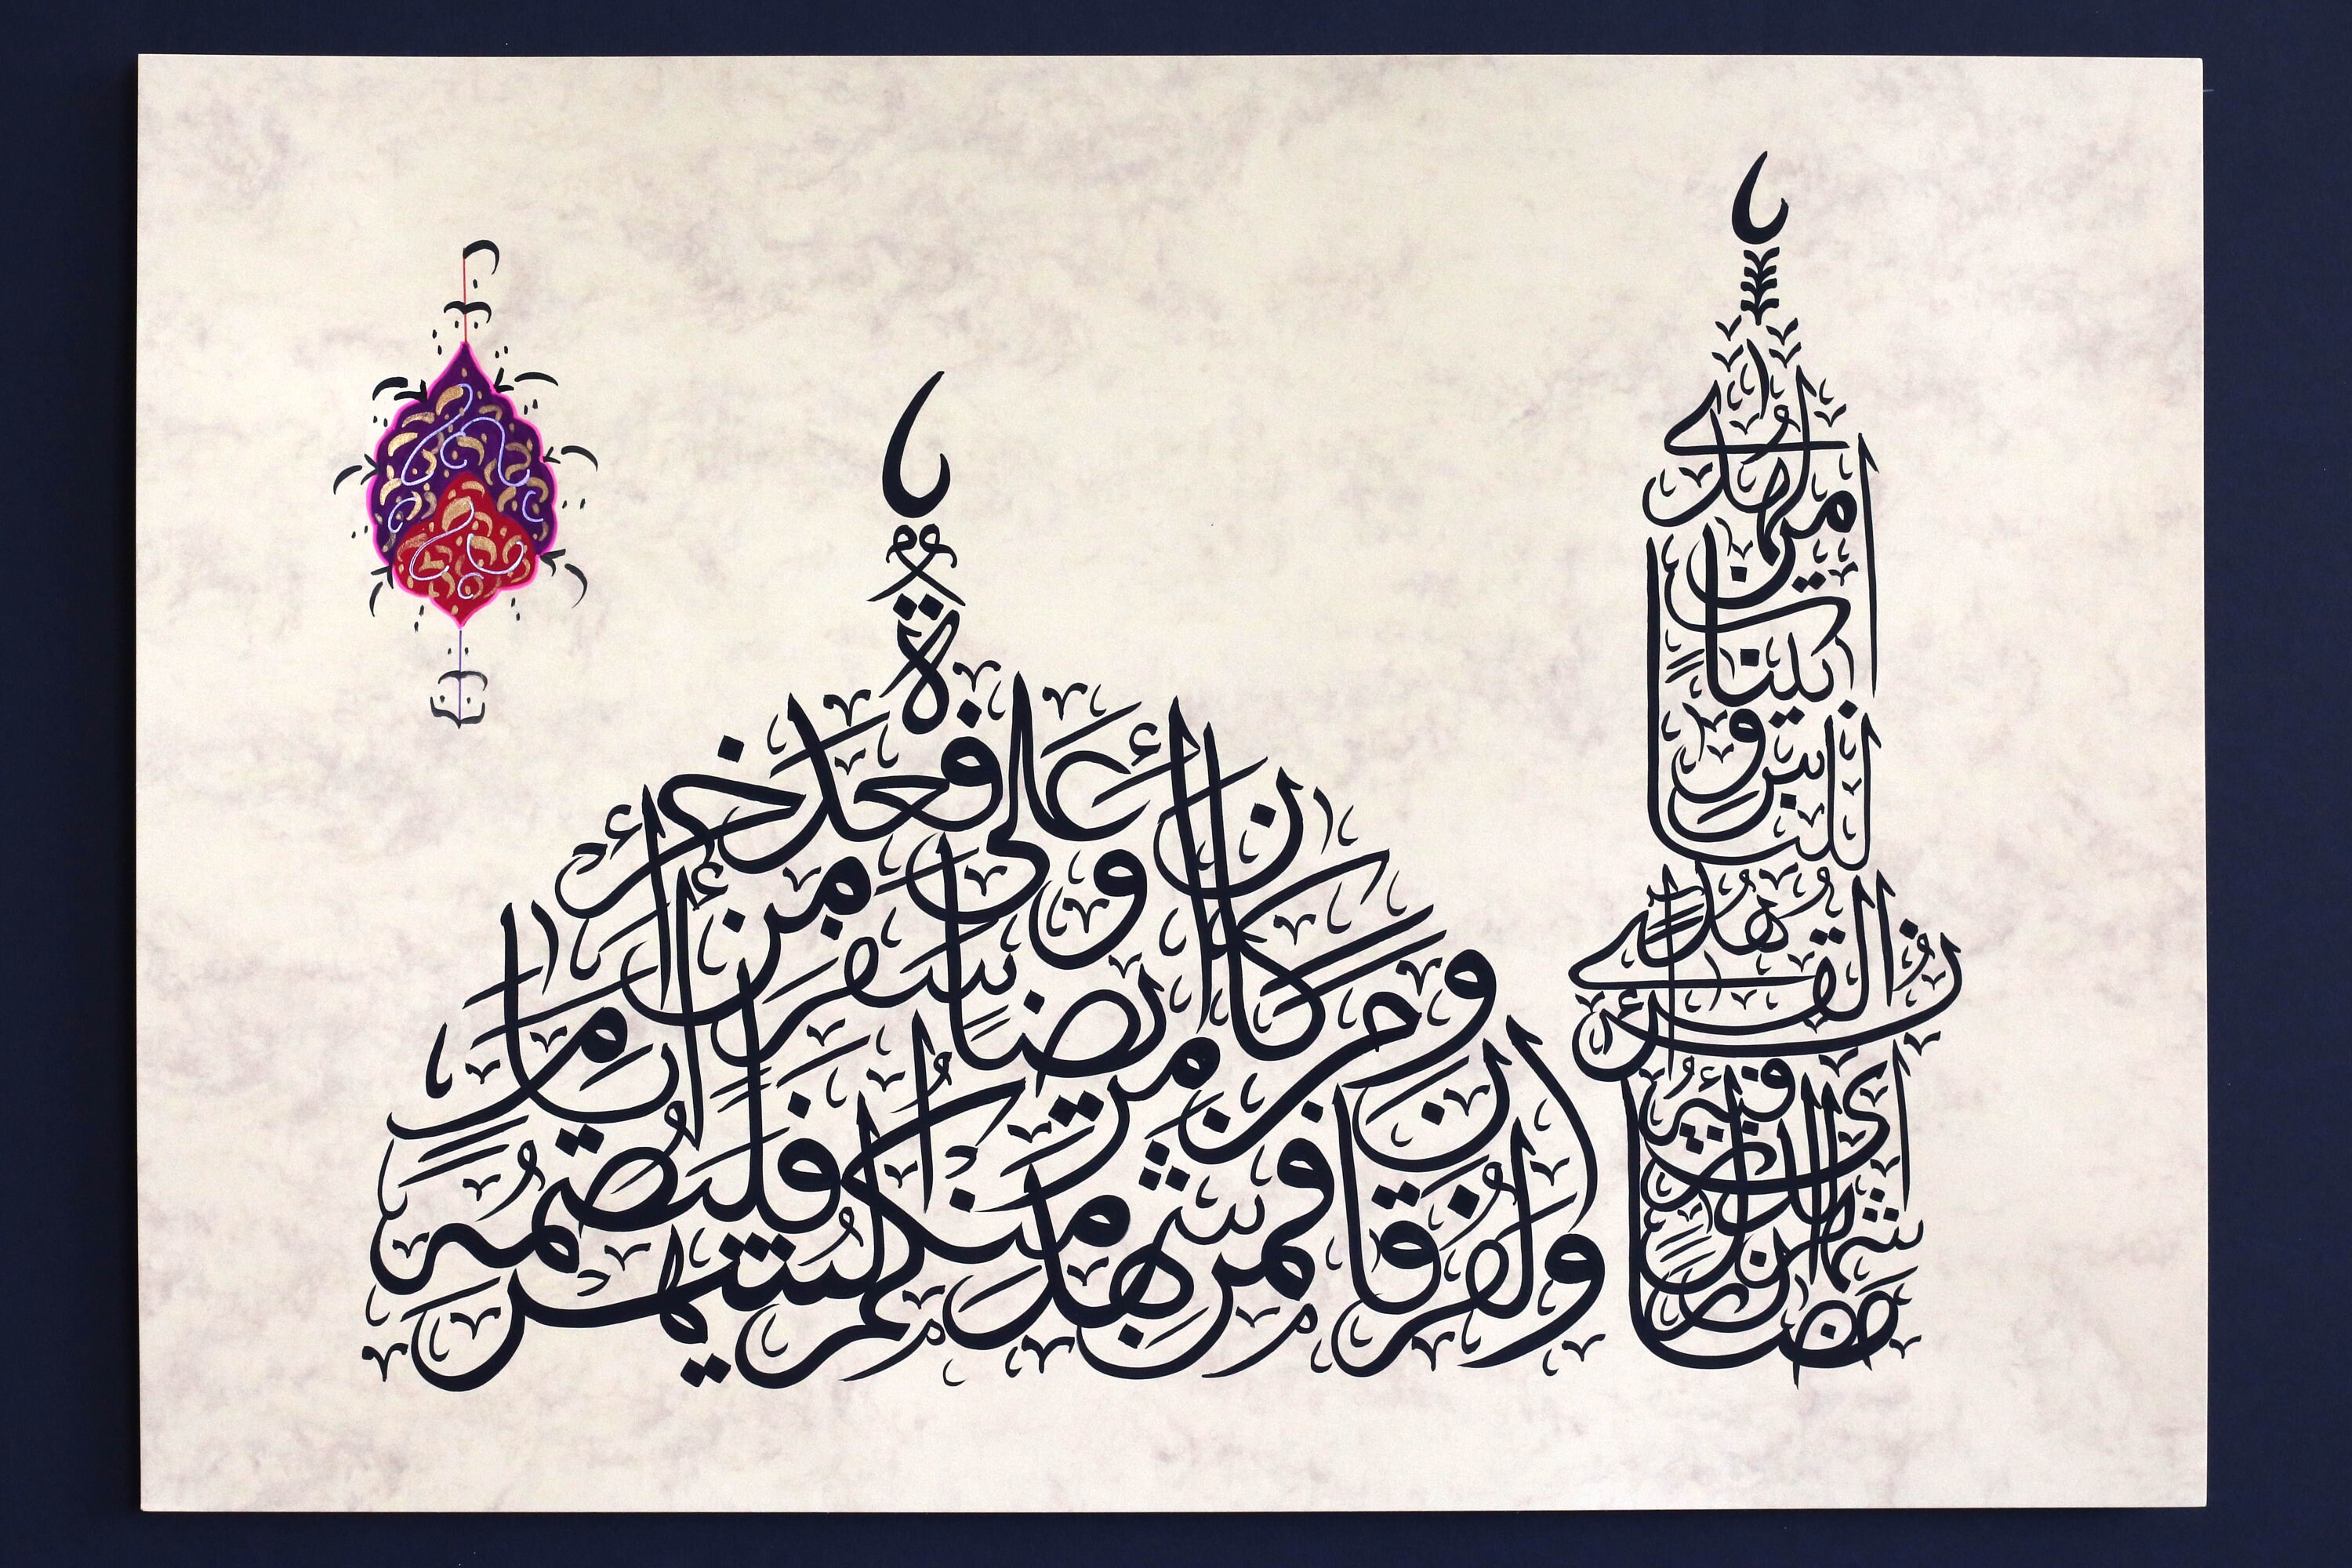 شهر رمضان الذي أنزل فيه
القرآن هدى
للناس و
بينات
من الهدى
والفرقان فمن شهد منكم الشهر فليصمه
ومن كان مريضا
أو على سفر
فعدة من أيام أخر